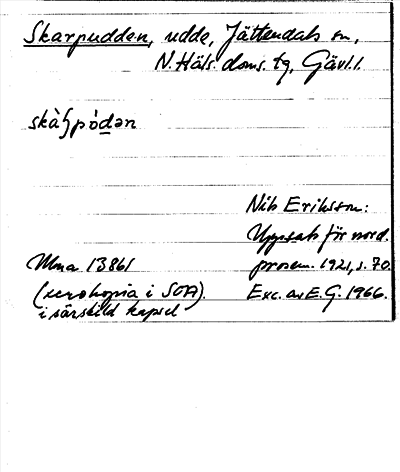 Skarpudden, udde, Jättendals sn,
N. Häls. doms. tg, Gävl. l.
skàʃpódən
Nils Eriksson:
Uppsats för nord.
Ulma 13861 prosem. 1921, s. 70.
(xerokopia i SOA). Exc. av E. G. 1966.
i särskild kapsel